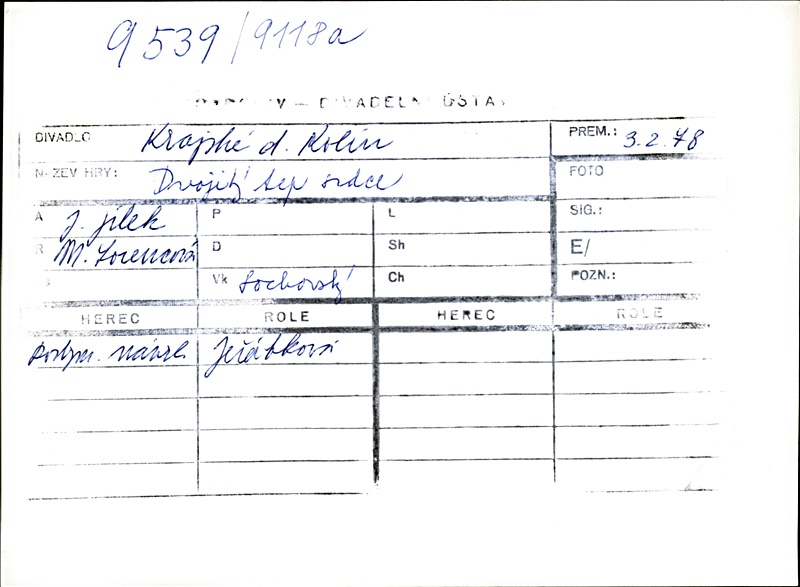 9539/9118a
DIVADELNÍ ÚSTAV
DIVADLO Krajské d. Kolín PREM.: 3.2.78
NÁZEV HRY: Dvojitý tep srdce FOTO
A J. Jílek P L SIG.:
R M. Lorencová D Sh E/
S Vk Sochorský Ch POZN.:
HEREC ROLE HEREC ROLE
návrh Jeřábková